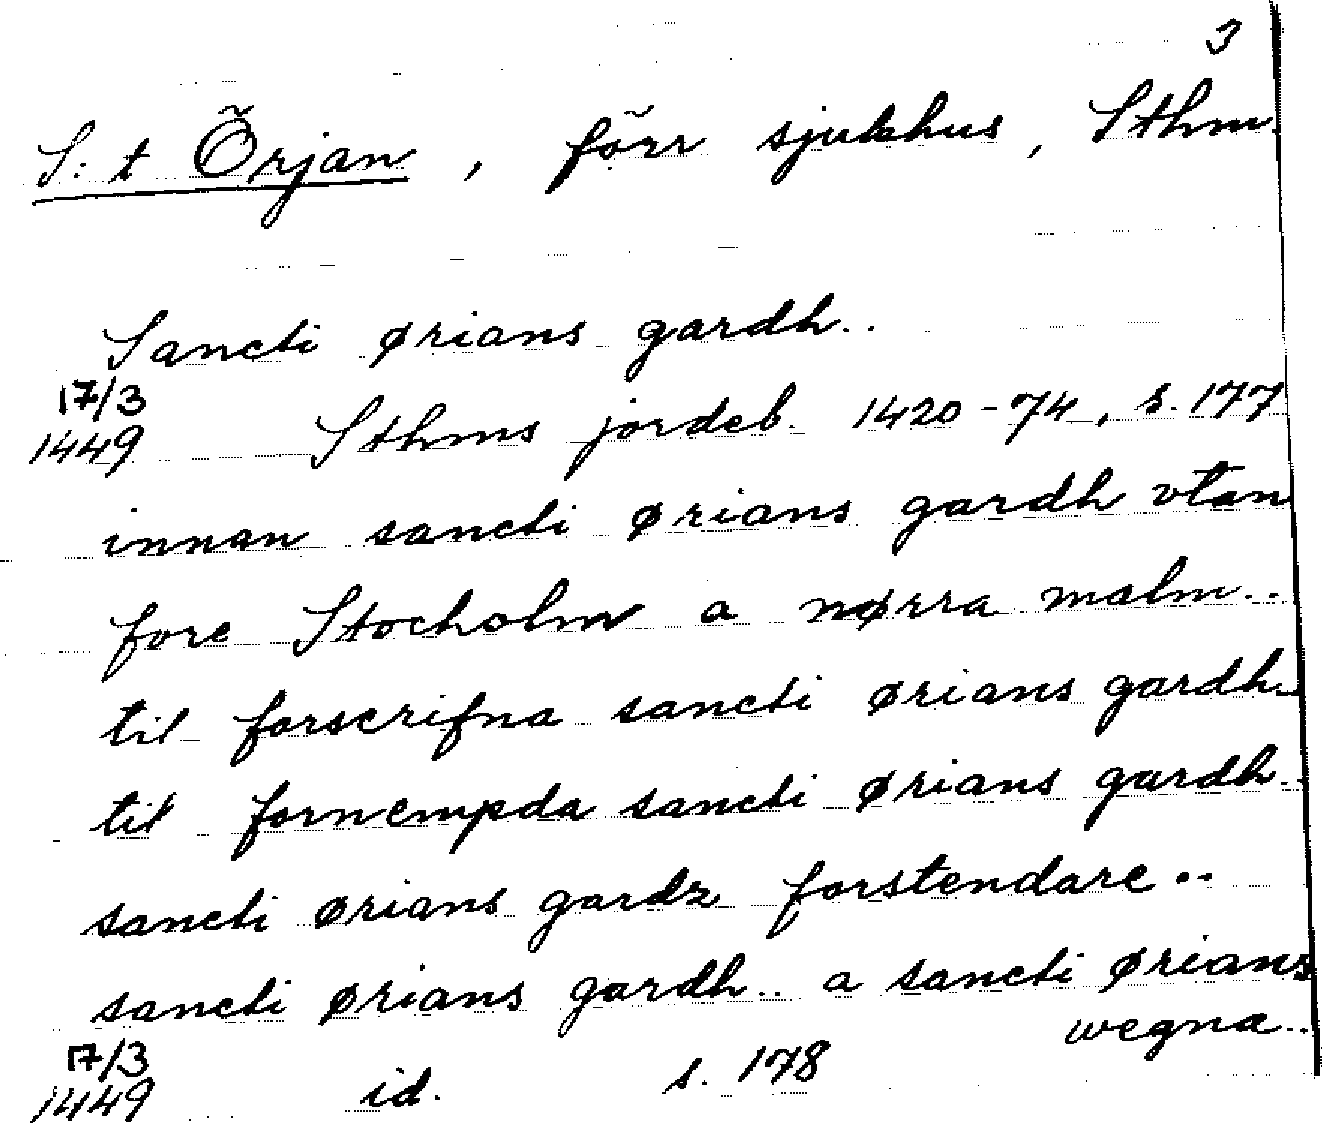 3
S:t Örjan, förr sjukhus, Sthm.
Sancti ørians gardh..
17/3
1449 Sthms jordeb. 1420-74, s. 177
innan sancti ørians gardh vtan
fore Stocholm a nørra malm..
til forscrifna sancti ørians gardh..
til fornempda sancti ørians gardh..
sancti ørians gardz forstendare..
sancti ørians gardh.. a sancti ørians
wegna..
17/3
1449 id. s. 178